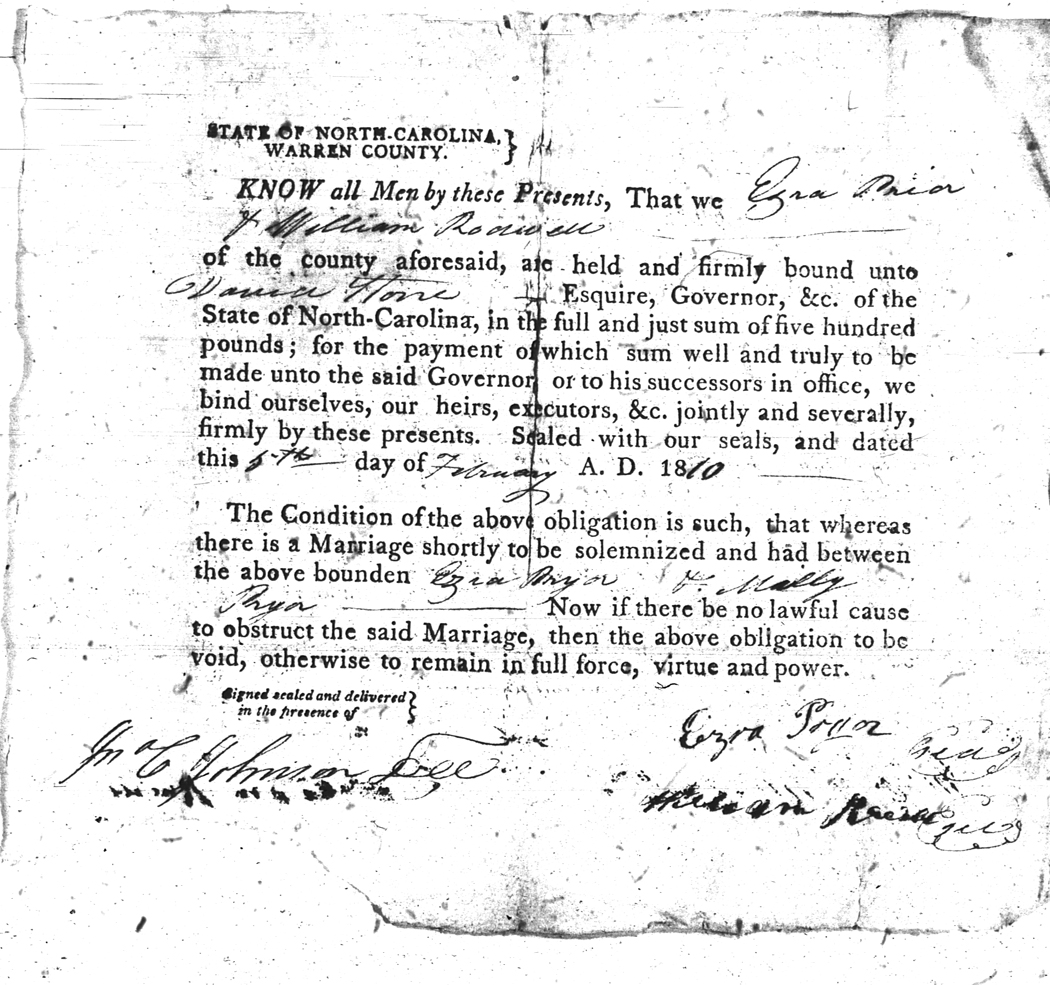 STATE OF NORTH-CAROLINA,
WARREN COUNTY.
KNOW all Men by these Presents, That we Ezra Prior
& William Rodwell
of the county aforesaid, are held and firmly bound unto
David Stone Esquire, Governor, &c. of the
State of North-Carolina, in the full and just sum of five hundred
pounds; for the payment of which sum well and truly to be
made unto the said Governor, or to his successors in office, we
bind ourselves, our heirs, executors, &c. jointly and severally,
firmly by these presents. Sealed with our seals, and dated
this 5th day of February A. D. 1810
The Condition of the above obligation is such, that whereas
there is a Marriage shortly to be solemnized and had between
the above bounden Ezra Pryor & Mally
Pryor Now if there be no lawful cause
to obstruct the said Marriage, then the above obligation to be
void, otherwise to remain in full force, virtue and power.
Signed sealed and delivered
in the presence of
Ezra Pryor Seal
Jno C Johnson
William Seal